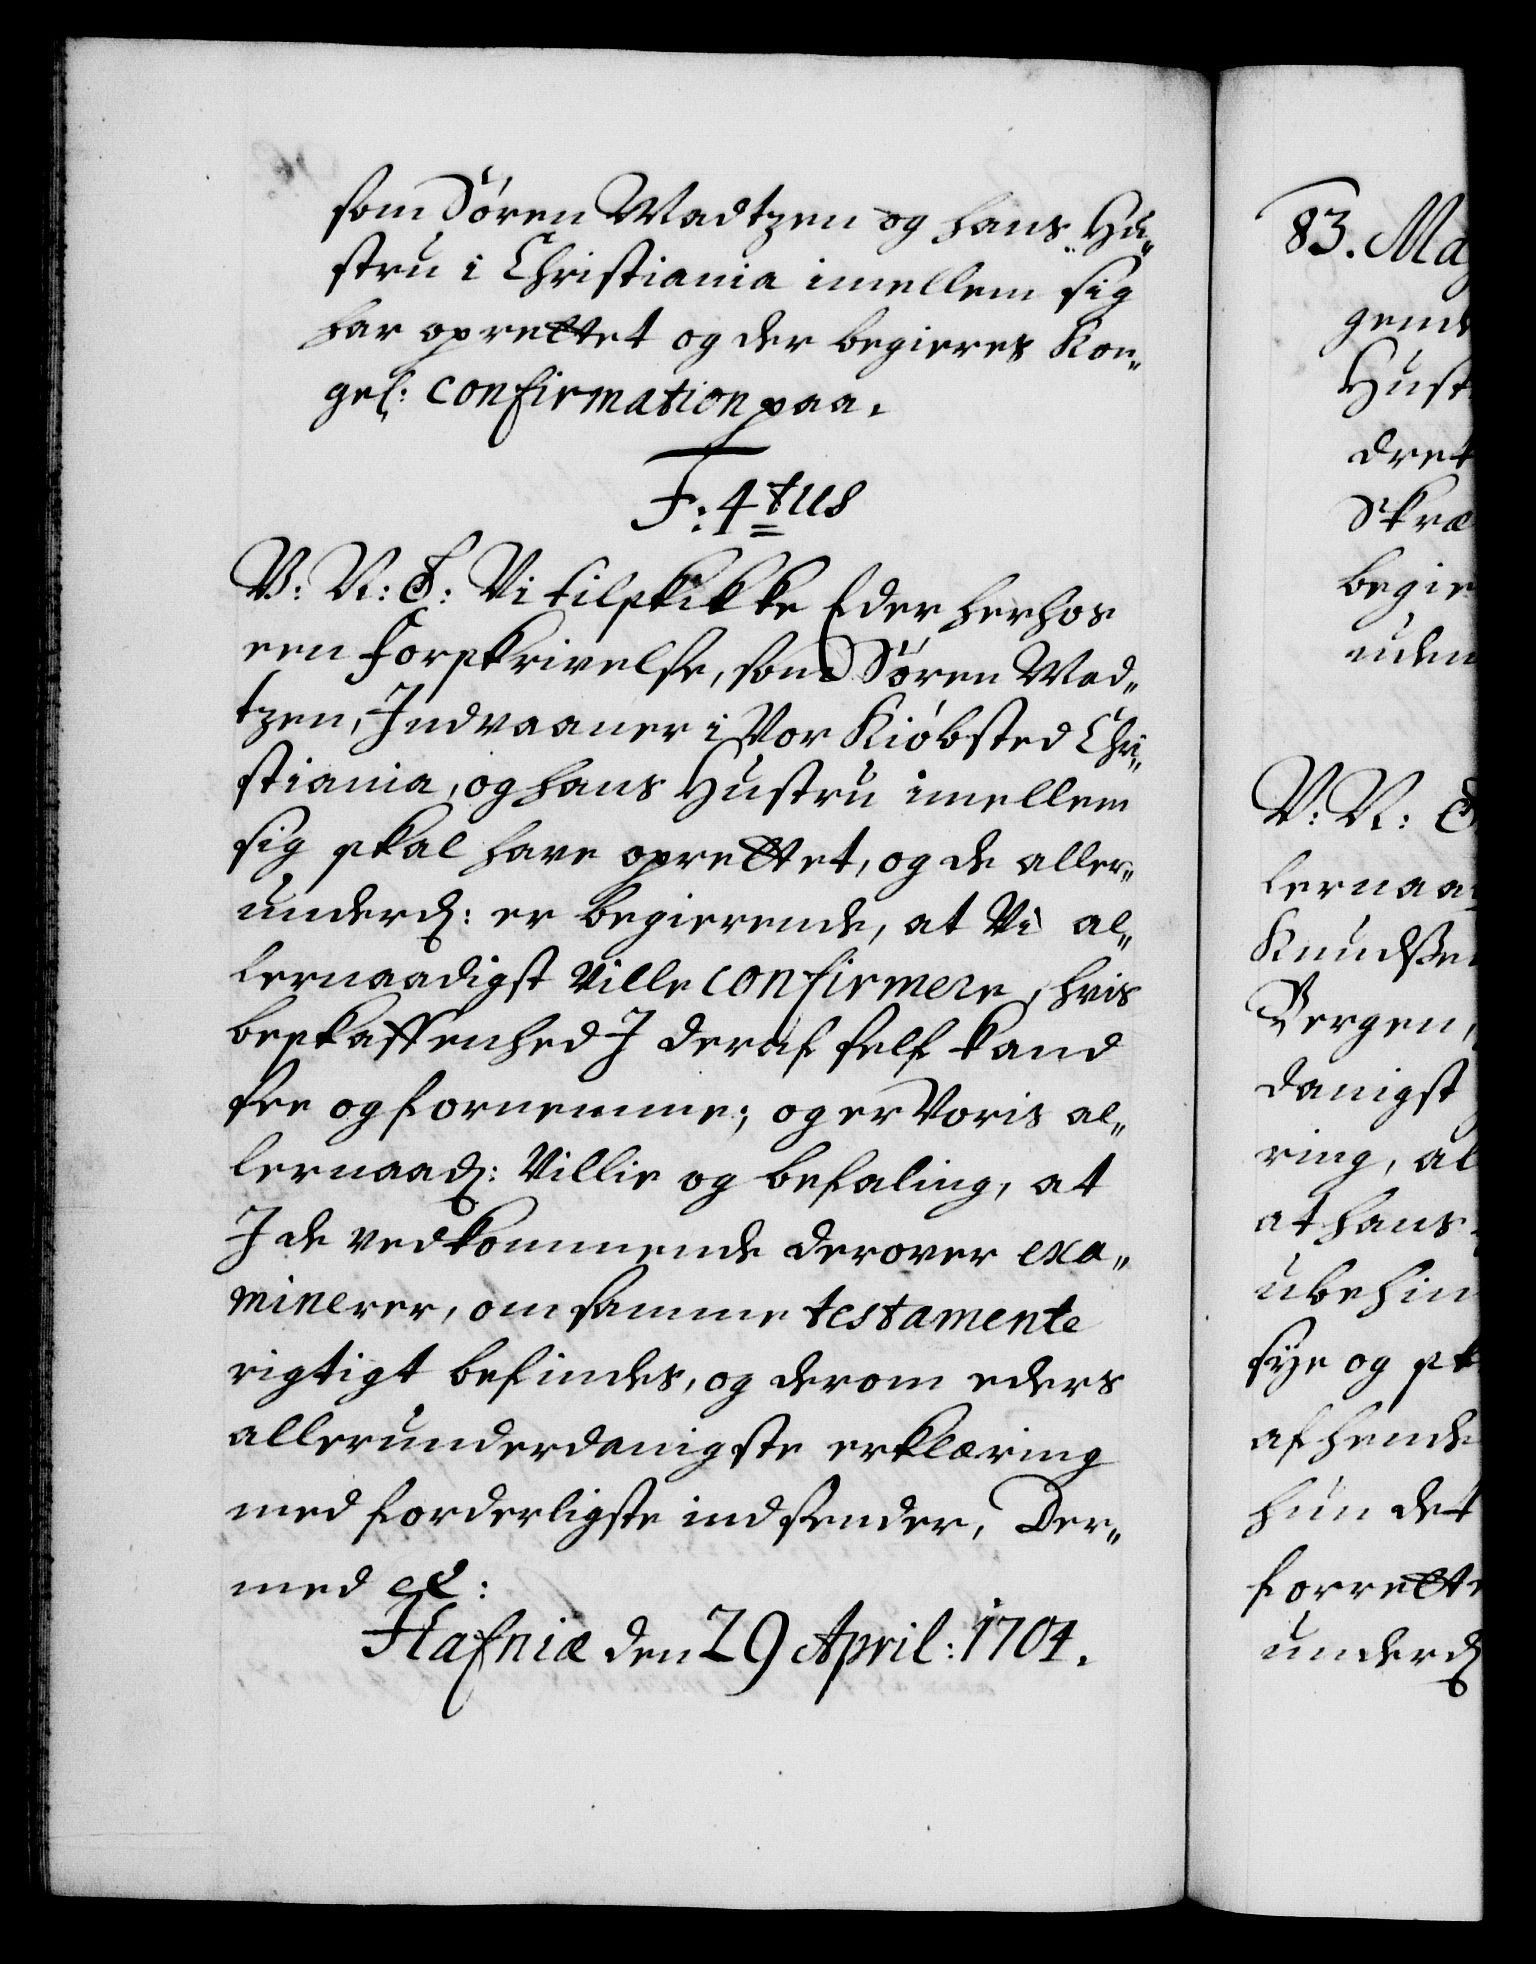 som Sören Madtzen og hans Hu„
stru i Christiania imellem sig
har oprettet og der begieres Kon„
gel: confirmation paa.
F: 4tus
V: N: G: Vi tilskikke Eder herhos
een forskrivelse, som Sören Mad„
tzen, Indvaaner i Vor Kiöbsted Chri„
stiania, og hans Hustru imellem
sig skal have oprettet, og de aller„
underd: er begierende, at Vi al„
lernaadigst Ville confirmere, hvis
beskaffenhed I deraf self kand
see og fornemme; og er Voris al„
lernaad: Villie og befaling, at
I de vedkommende derover exa„
minerer, om samme testamente
rigtigt befindes, og derom eders
allerunderdanigste erklæring
med forderligste indsender, Der„
med etc:
Hafniæ den 29 April: 1704.
83. Mag
gende
Hust
dret
Skræ
begie
uden
V: N: G
lernaa
Knudsen
Bergen,
danigst
ring, al
at hans
ubehin
sye og sk
afhende
hun det
forrette
underd